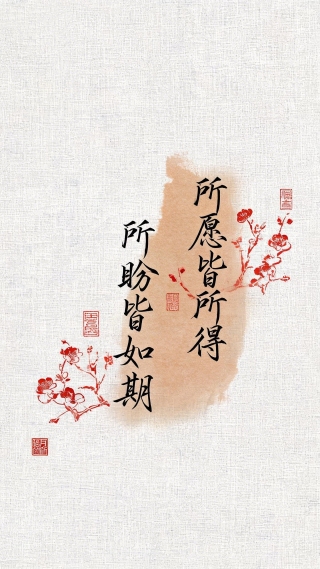 所愿皆所得
所盼皆如期